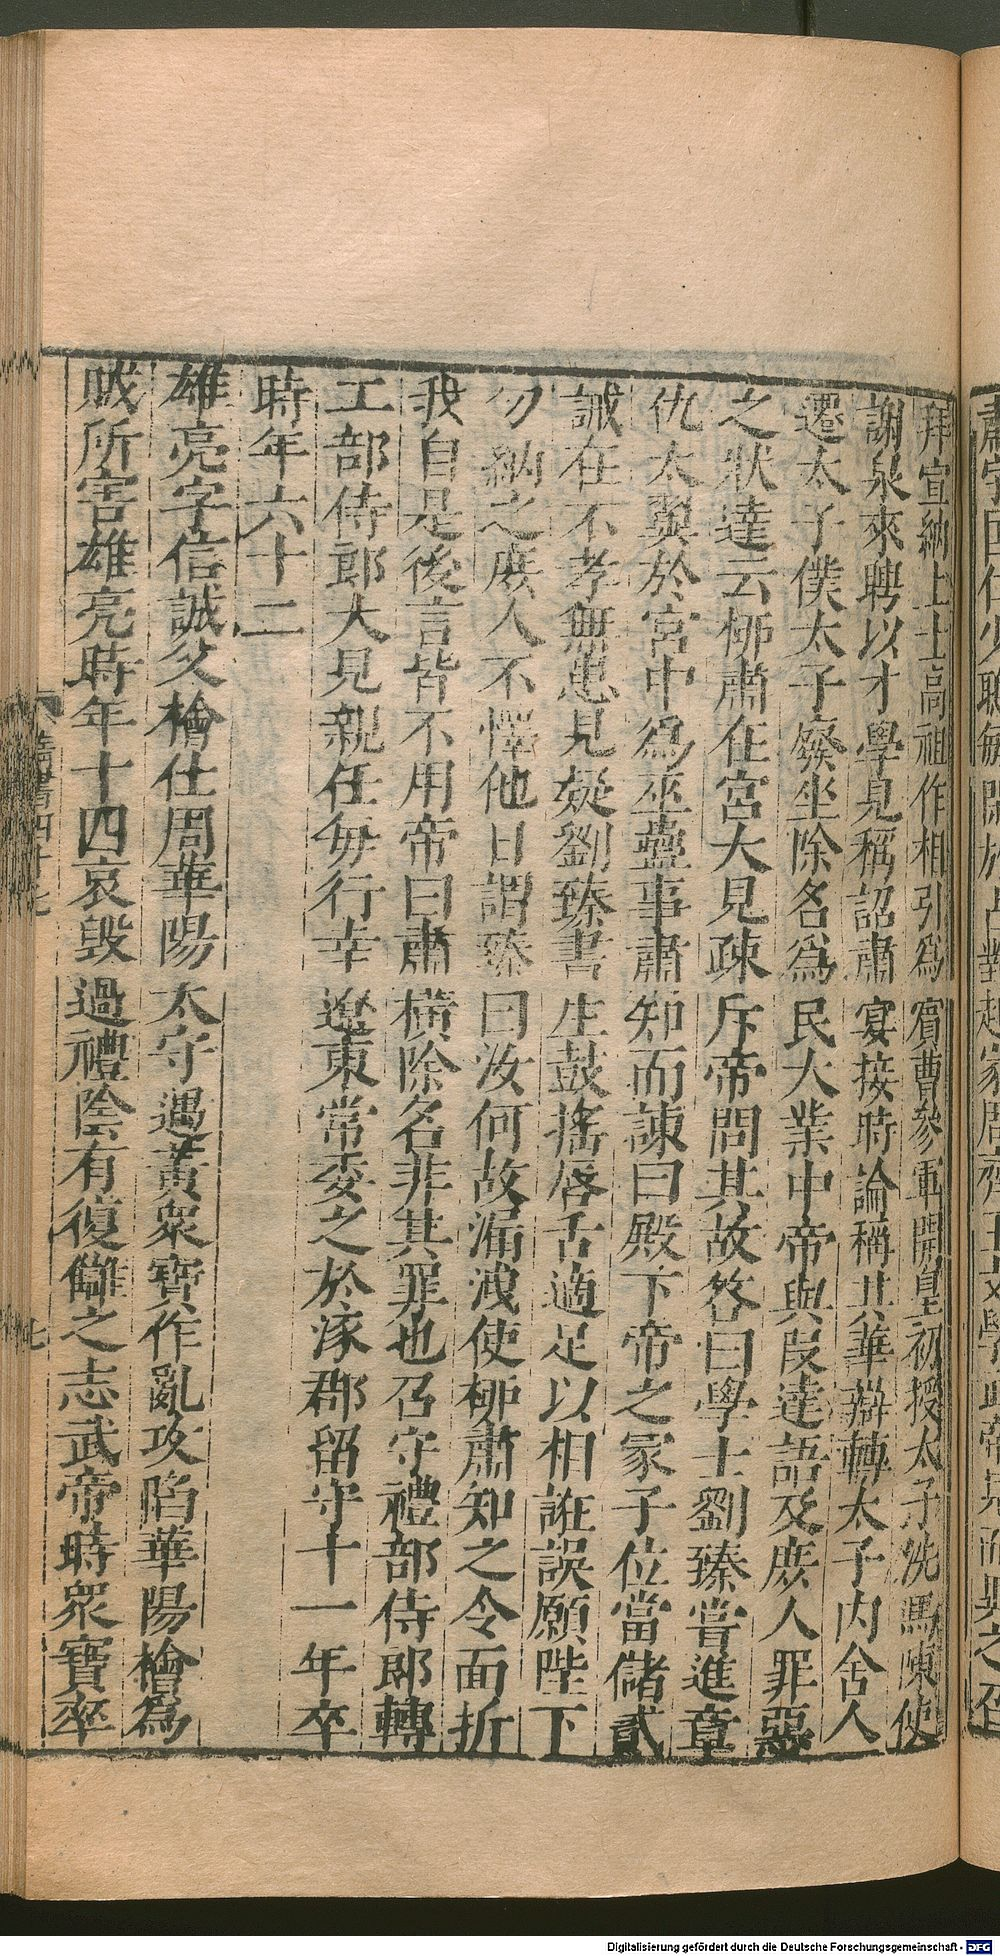 拜宣納上士高祖作相引爲賓曹參軍開皇初授太子洗馬陳使
謝泉來聘以才學見稱詔肅宴接時論稱其華辯轉太子內舍人
遷太子僕太子廢坐除名爲民大業中帝與段達語及庶人罪惡
之狀達云栁肅在宮大見疎斥帝問其故答曰學士劉臻嘗進章
仇太翼於宮中爲巫蠱事肅知而諫曰殿下帝之冢子位當儲貳
誡在不孝無患見疑劉臻書生鼓搖唇舌適足以相誑誤願陛下
勿納之庶人不懌他日謂臻曰汝何故漏洩使栁肅知之令面折
我自是後言皆不用帝曰肅橫除名非其罪也召守禮部侍郎轉
工部侍郎大見親任毎行幸遼東常委之於涿郡留守十一年卒
時年六十二
雄亮字信誠父檜仕周華陽太守遇黃衆寶作亂攻陷華陽檜爲
賊所害雄亮時年十四哀毀過禮陰有復讎之志武帝時衆寶率
七
Digitalisierung gefördert durch die Deutsche Forschungsgemeinschaft - DFG